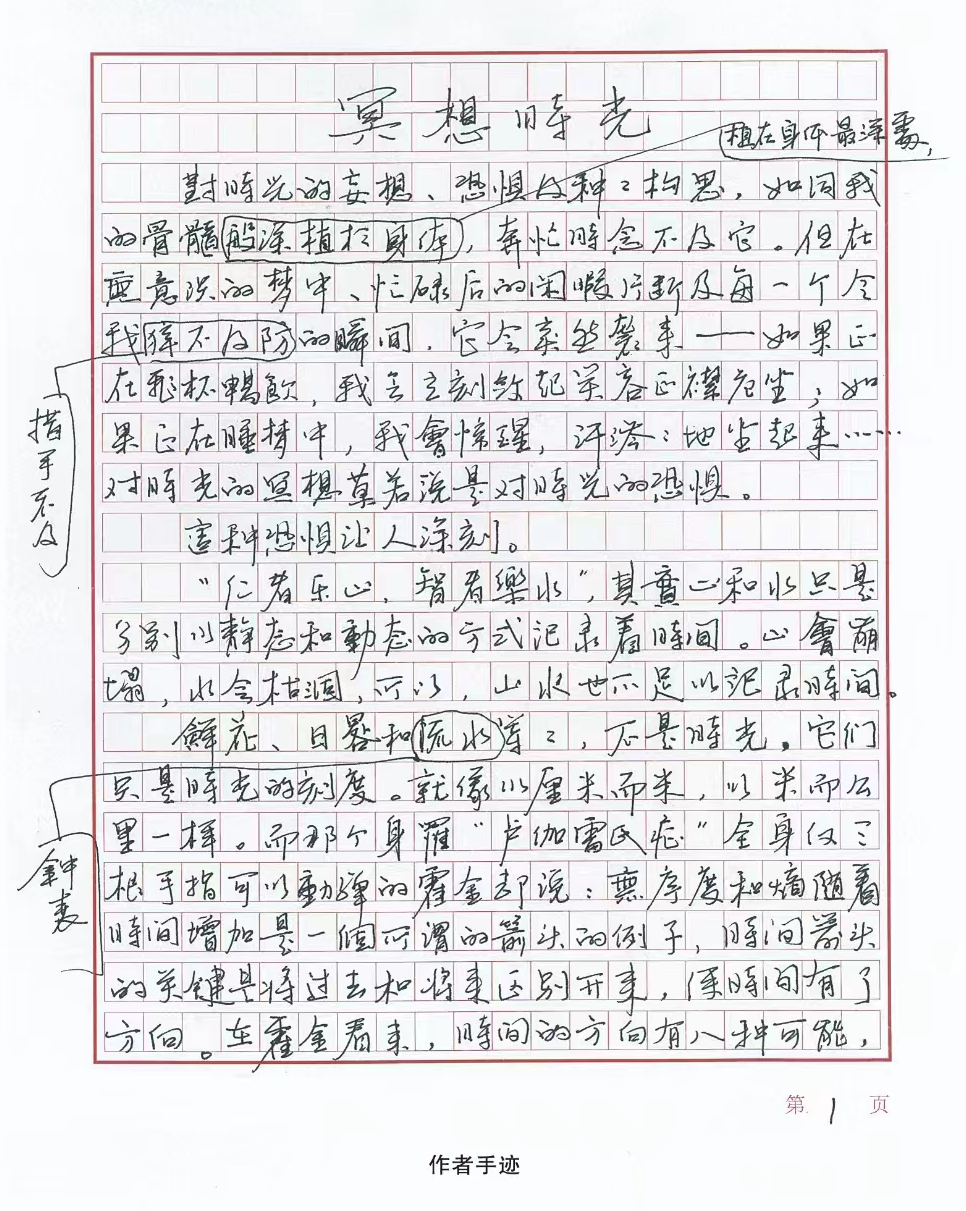 冥想時光
植在身体最深處，
對時光的妄想、恐惧及种々构思，如同我
的骨髓般深植於身体，奔忙時念不及它。但在
無意识的梦中、忙碌后的闲暇片断及每一个令
我猝不及防的瞬间，它会突然袭来——如果正
在飛杯鴨飲，我会立刻敛起笑容正襟危坐；如
果正在睡梦中，我會惊醒，汗涔々地坐起来……
对時光的冥想莫若说是对時光的恐惧。
措手不及
這种恐惧让人深刻。
“仁者乐山，智者樂水”，其實山和水只是
分别以静态和動态的方式记录着時间。山會崩
塌，水会枯涸，可以，山水也不足以记录時间。
鲜花、日晷和流水等々，不是時光。它们
只是時光的刻度。就像以厘米而米，以米而公
里一样。而那个身罹“卢伽雷氏症”全身仅三
鈡表
根手指可以動弹的霍金却说：無序度和熵随着
時间增加是一個可谓的箭头的例子，時间箭头
的关键是将过去和将来区别开来，使時间有了
方向。在霍金看来，時间的方向有八种可能，
第1页
作者手迹